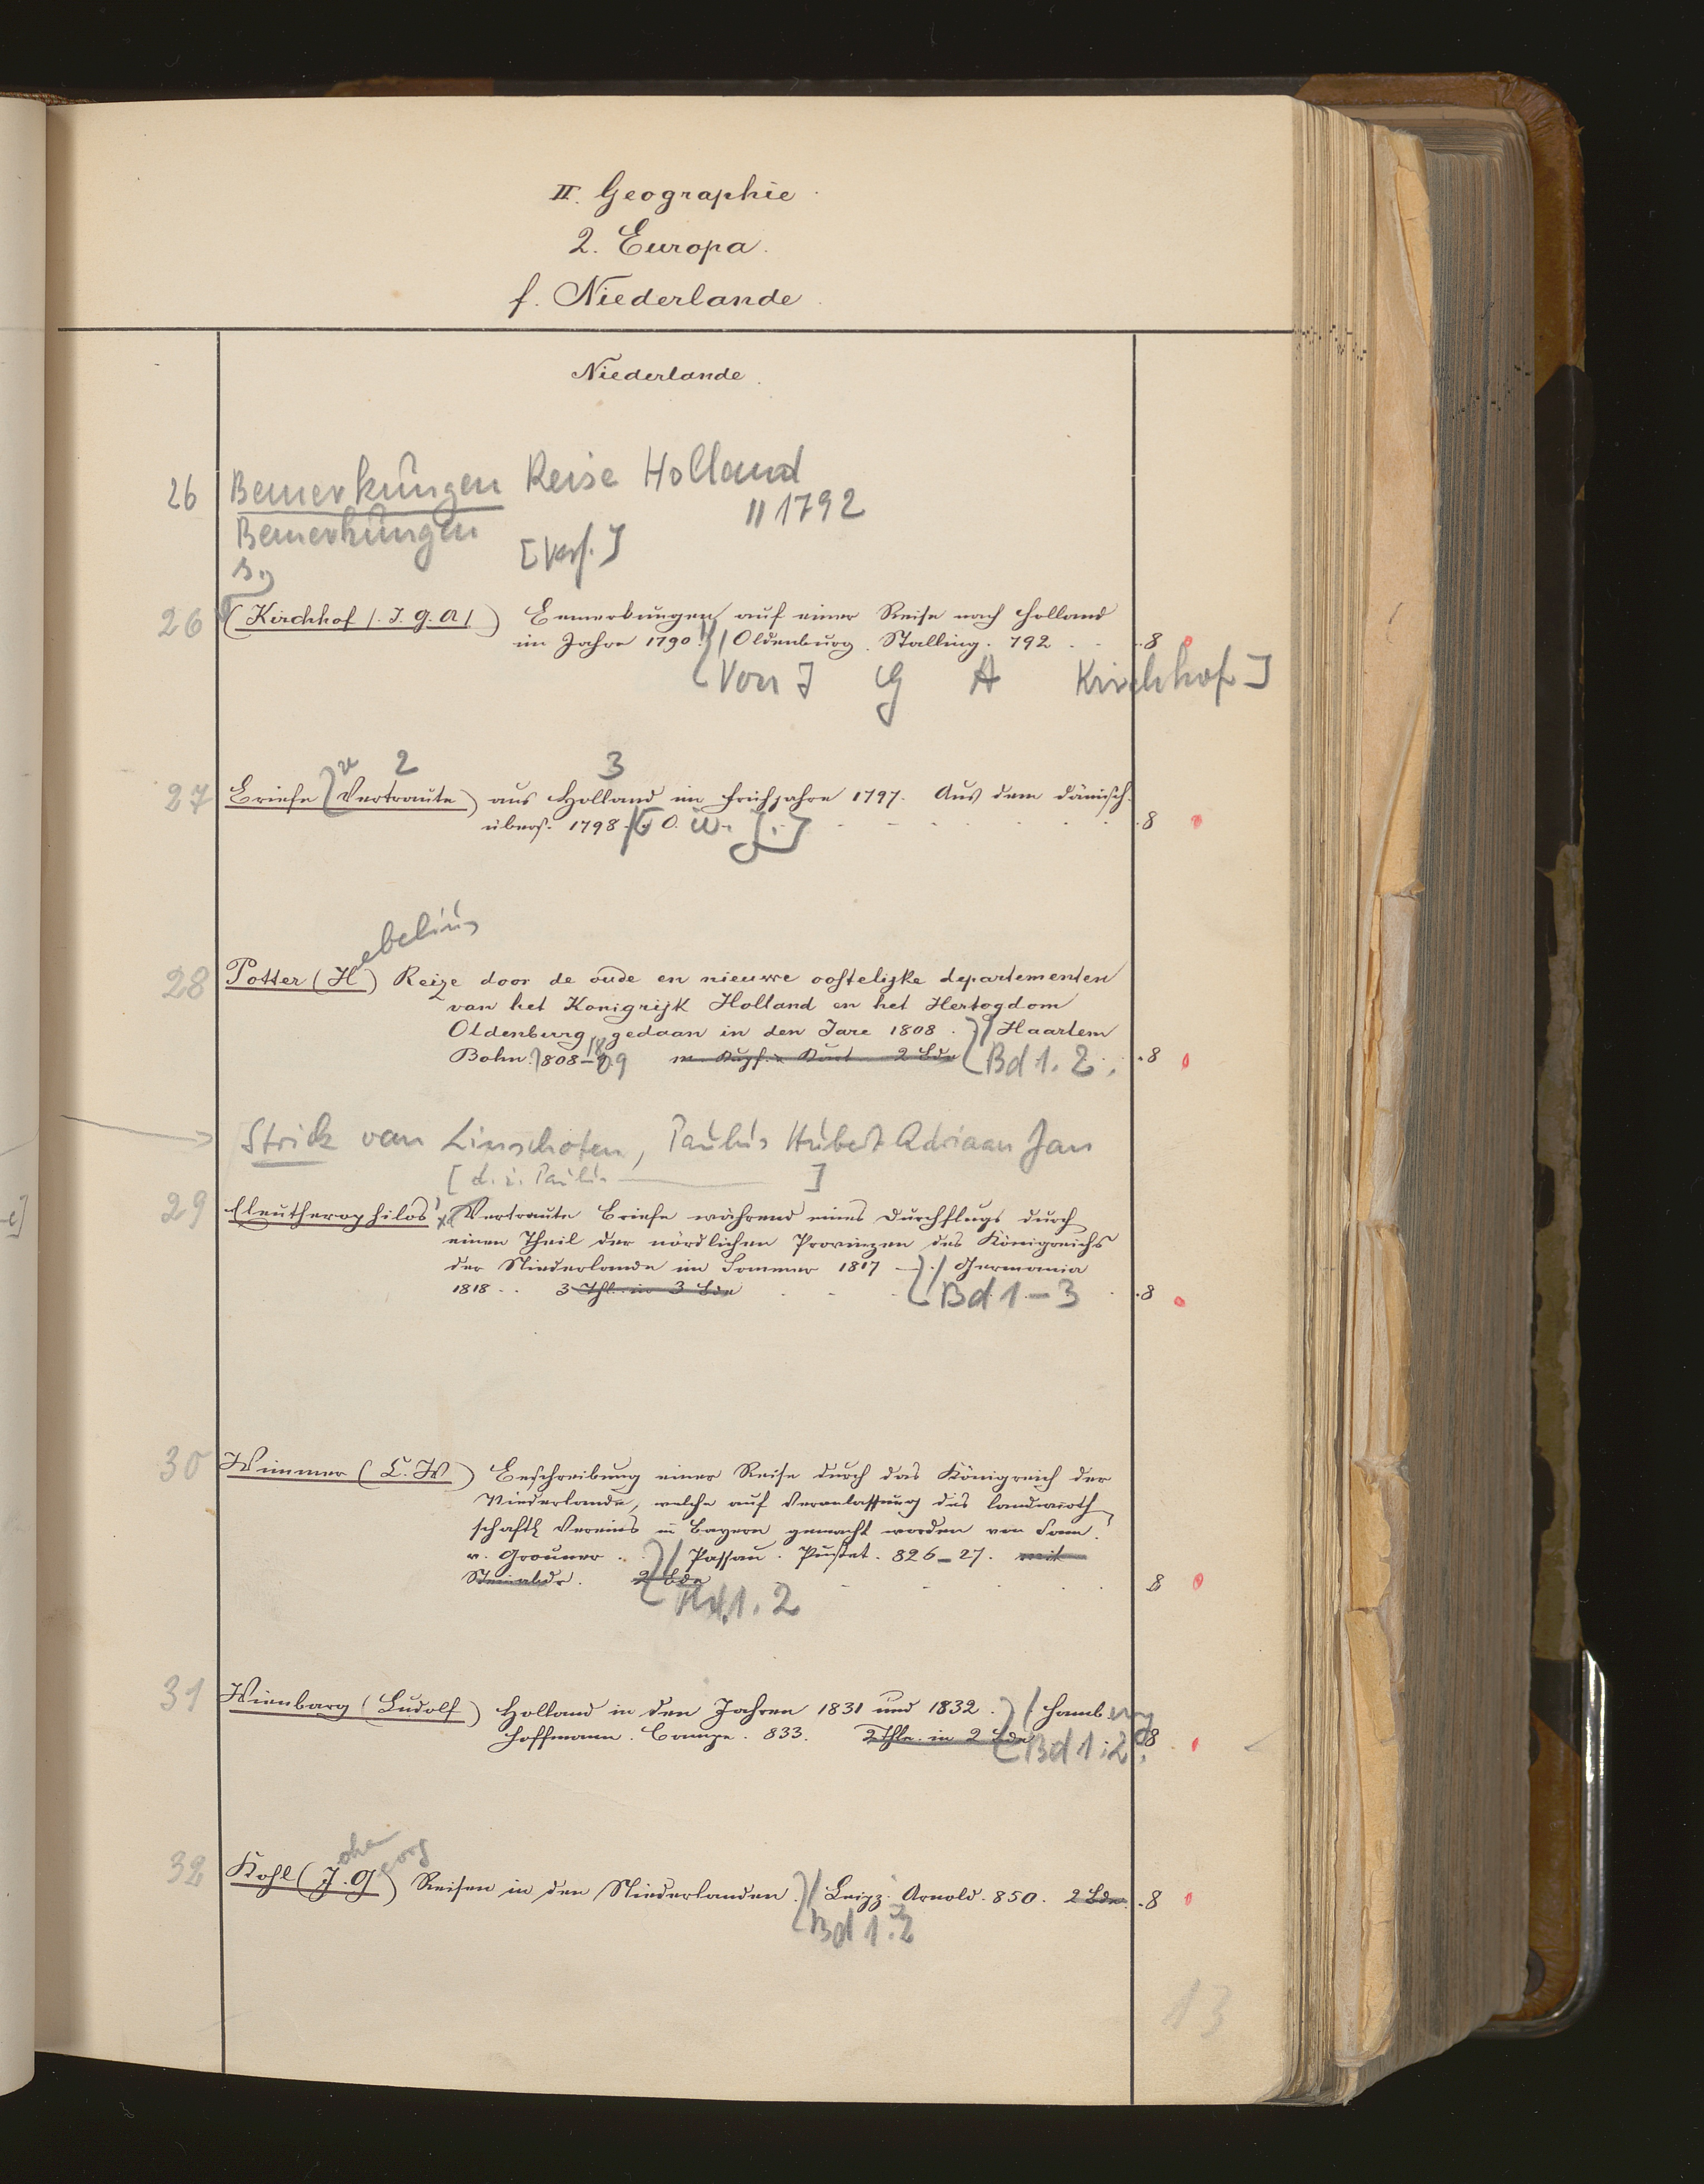 II. Geographie.
2. Europa.
f. Niederlande.
Niederlande.
26 Bemerkungen Reise Holland
Bemerkungen 1792
[Verf.]
s.
26 (Kirchhof /. J. G. A/) Bemerkungen auf einer Reise nach Holland
im Jahre 1790. / Oldenburg. Stalling. 792 . . 8
[Von J G A Kirchhof]
2 3
27 Briefe (Vertraute) aus Holland im Frühjahre 1797. Aus dem dänisch.
übers. 1798. O. . 8
ebelius
28 Potter (H) Reize door de oude en nieuwe oostelijke departementen
van het Konigrijk Holland en het Hertogdom
Oldenburg, gedaan in den Jare 1808. / Haarlem
Bohn. 808-09 m. Kupf. u. Kart 2 Bde Bd 1. 2. . 8
Strick van Linschoten, Paulus Hubert Adriaan Jan
[d. i. Paulus ]
29 Eleutherophilos' Vertraute Briefe während eines Durchflugs durch
einen Theil der nördlichen Provinzen des Königreichs
der Niederlande im Sommer 1817 —. / Germania
1818 . . 3 Thl. in 3 Bde Bd 1-3 . 8
30 Wimmer (C. W) Beschreibung einer Reise durch das Königreich der
Niederlande, welche auf Veranlassung des landwirth
schaftl Vereins in Bayern gemacht worden von Sam.
v. Grouner . . / Passau. Pustet. 826-27. mit
Steinabdr. 2 Bde 8
Bd. 1. 2
31 Wienbarg (Ludolf) Holland in den Jahren 1831 und 1832. / Hamburg
Hoffmann. Campe. 833. 2 Thle. in 2 Bde Bd 1. 2. 8
ohann eorg
32 Kohl (J. G) Reisen in den Niederlanden. / Leipz. Arnold. 850. 2 Bde. . 8
Bd 1. 2
13